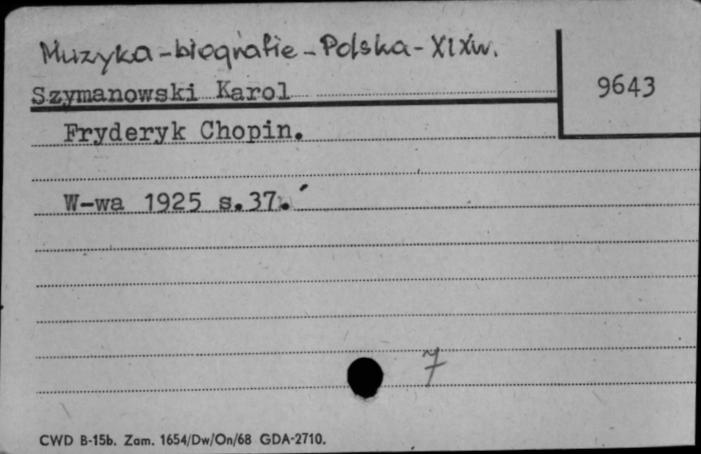 Muzyka - biografie - Polska - XIXw.
Szymanowski Karol
9643
Fryderyk Chopin.
W-wa 1925 s.37.
7
CWD B-15b. Zam. 1654/Dw/On/68 GDA-2710.